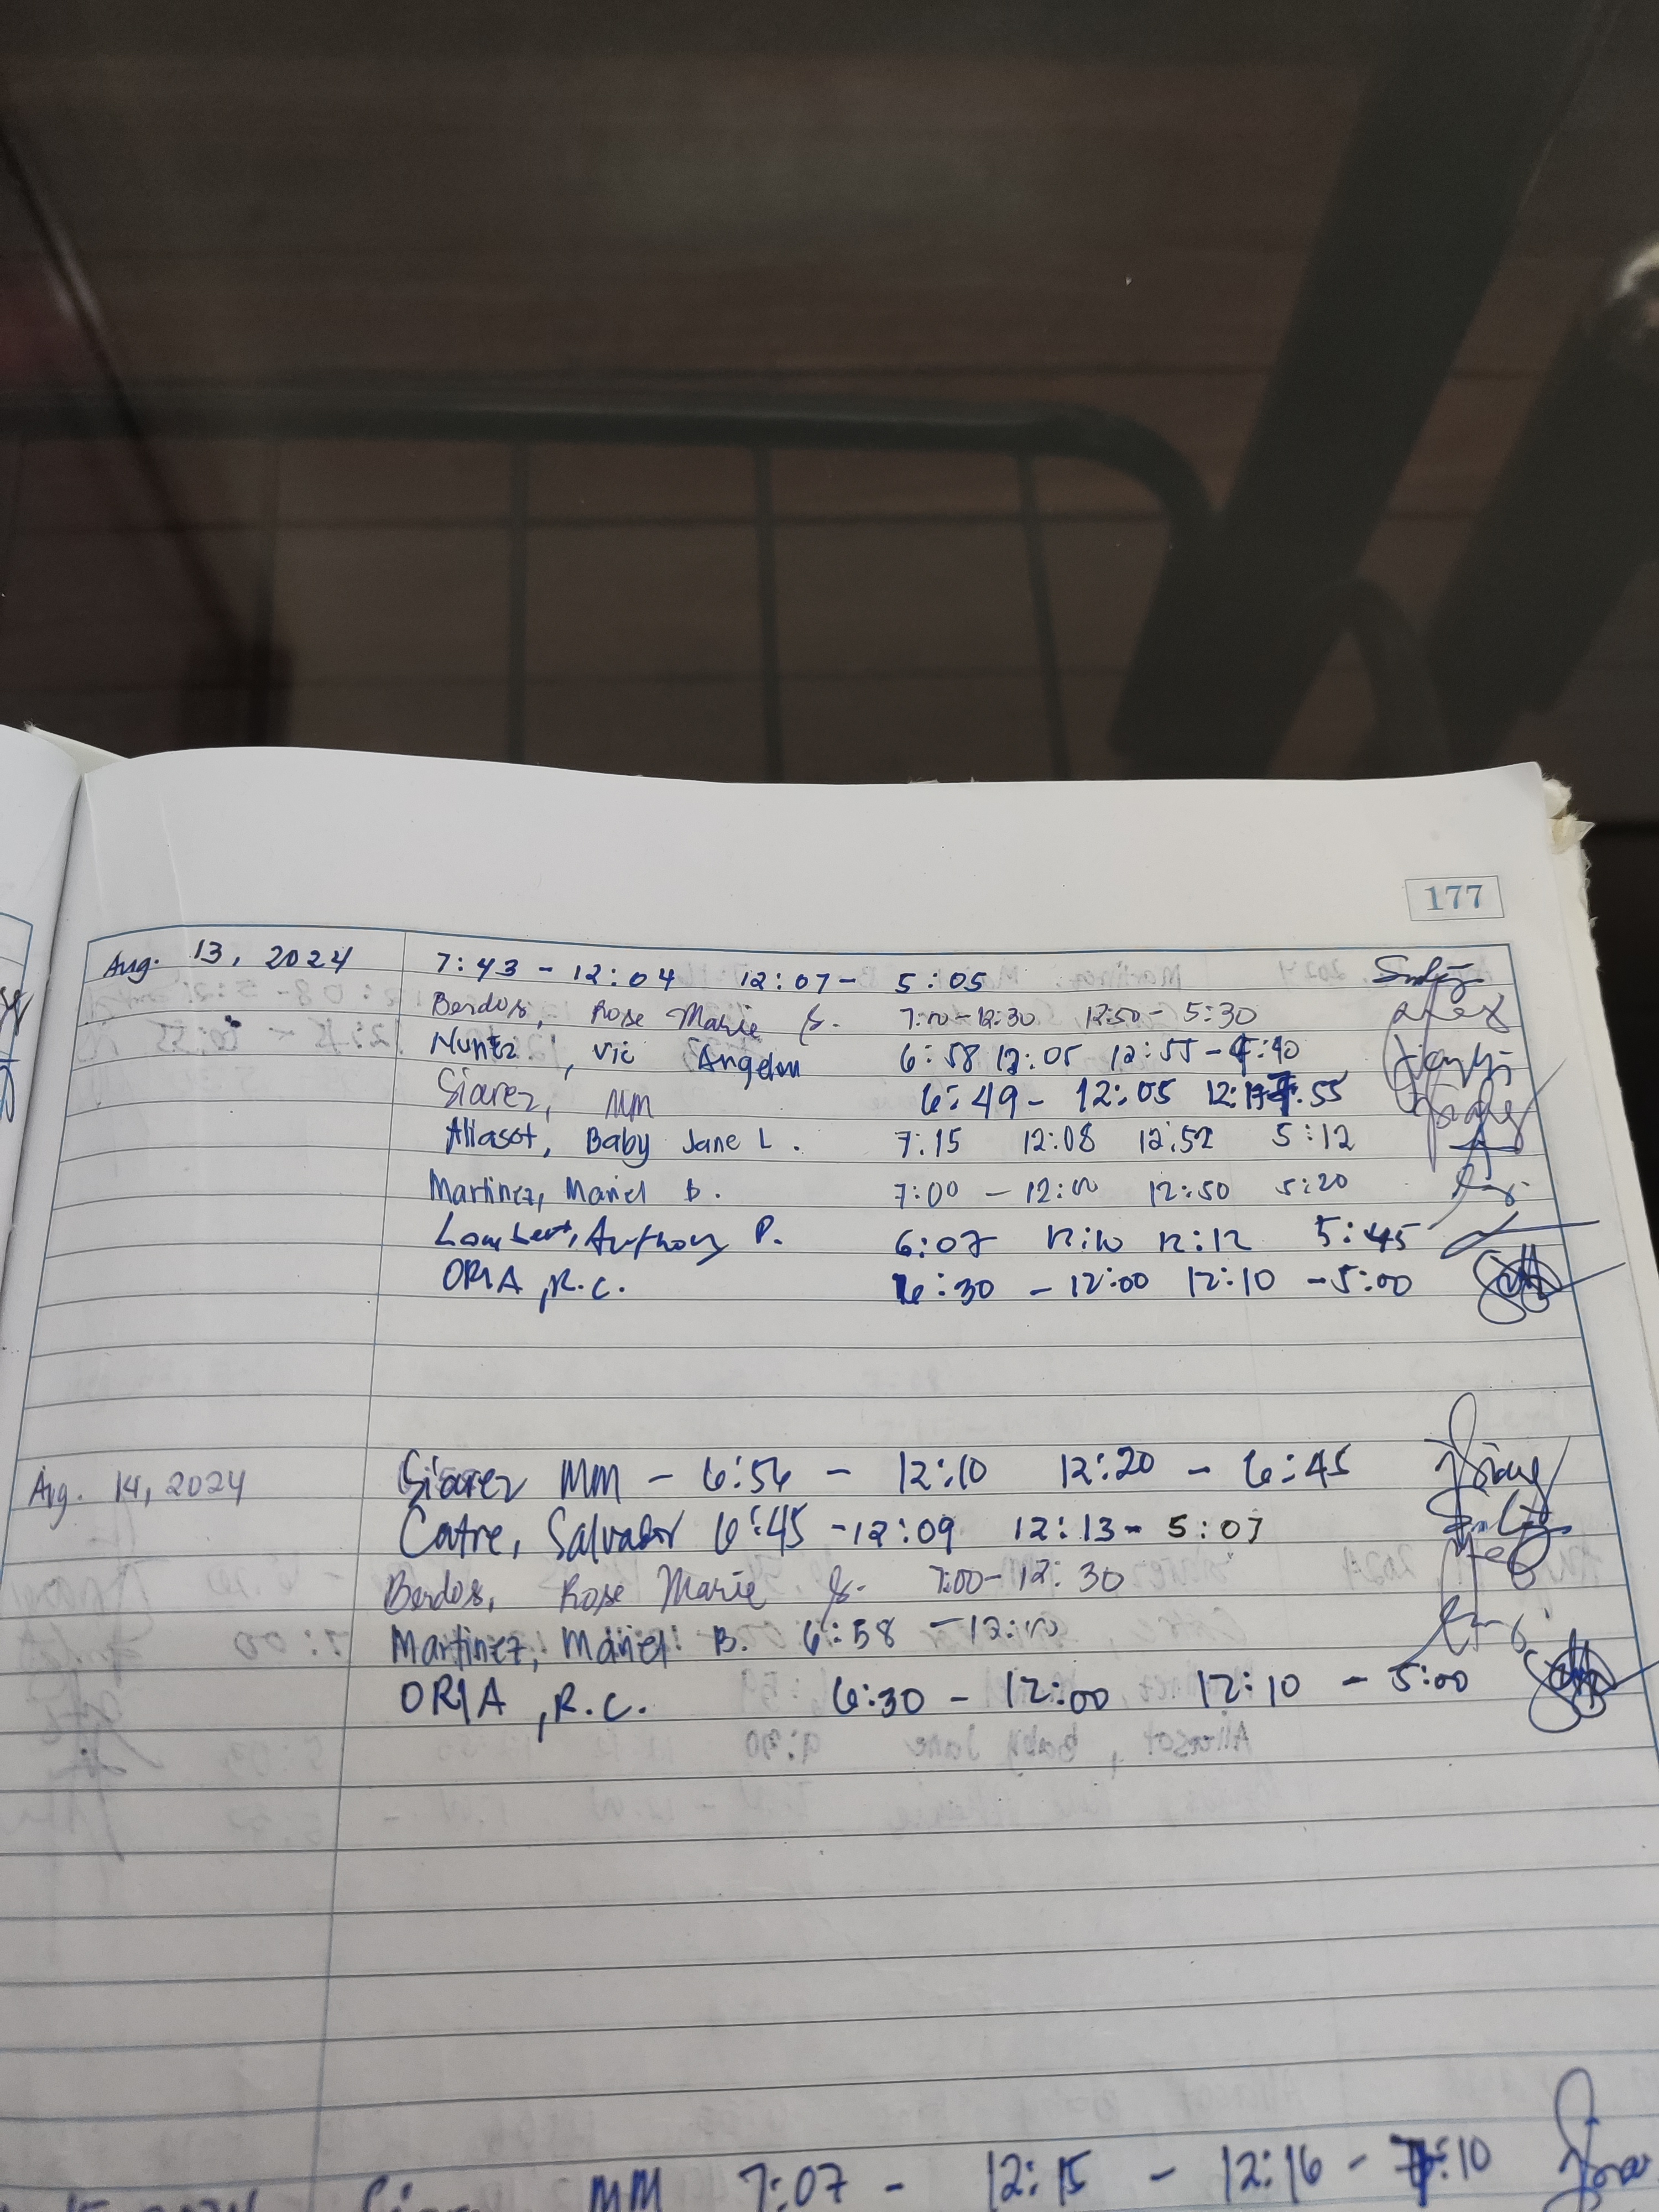 177
Aug. 13, 2024 7:43 - 12:04 12:07 - 5:05
Berdos, Rose Marie G. 7:00 - 12:30 12:50 - 5:30
Nuñez, Vic Angelou 6:58 12:05 12:55 - 4:40
Siarez, MM 6:49 - 12:05 12:17 - 7:55
Aliasot, Baby Jane L. 7:15 12:08 12:52 5:12
Martinez, Mariel B. 7:00 - 12:00 12:50 5:20
Lambert, Anthony P. 6:07 12:10 12:12 5:45
ORIA, R.C. 6:30 - 12:00 12:10 - 5:00
Aug. 14, 2024 Siarez MM - 6:56 - 12:10 12:20 - 6:45
Catre, Salvador 6:45 - 12:09 12:13 - 5:07
Berdos, Rose Marie G. 7:00 - 12:30
Martinez, Mariel B. 6:58 - 12:00
ORIA, R.C. 6:30 - 12:00 12:10 - 5:00
MM 7:07 - 12:15 - 12:16 - 7:10